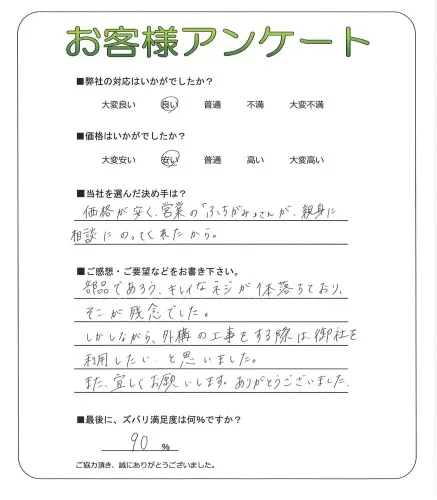 お客様アンケート
■弊社の対応はいかがでしたか？
大変良い 良い 普通 不満 大変不満
■価格はいかがでしたか？
大変安い 安い 普通 高い 大変高い
■当社を選んだ決め手は？
価格が安く、営業の「ふちがみ」さんが、親身に
相談にのってくれたから。
■ご感想・ご要望などをお書き下さい。
部品であろう、キレイなネジが1本落ちており、
そこが残念でした。
しかしながら、外構の工事をする際は、御社を
利用したい、と思いました。
また、宜しくお願いします。ありがとうございました。
■最後に、ズバリ満足度は何％ですか？
90 ％
ご協力頂き、誠にありがとうございました。